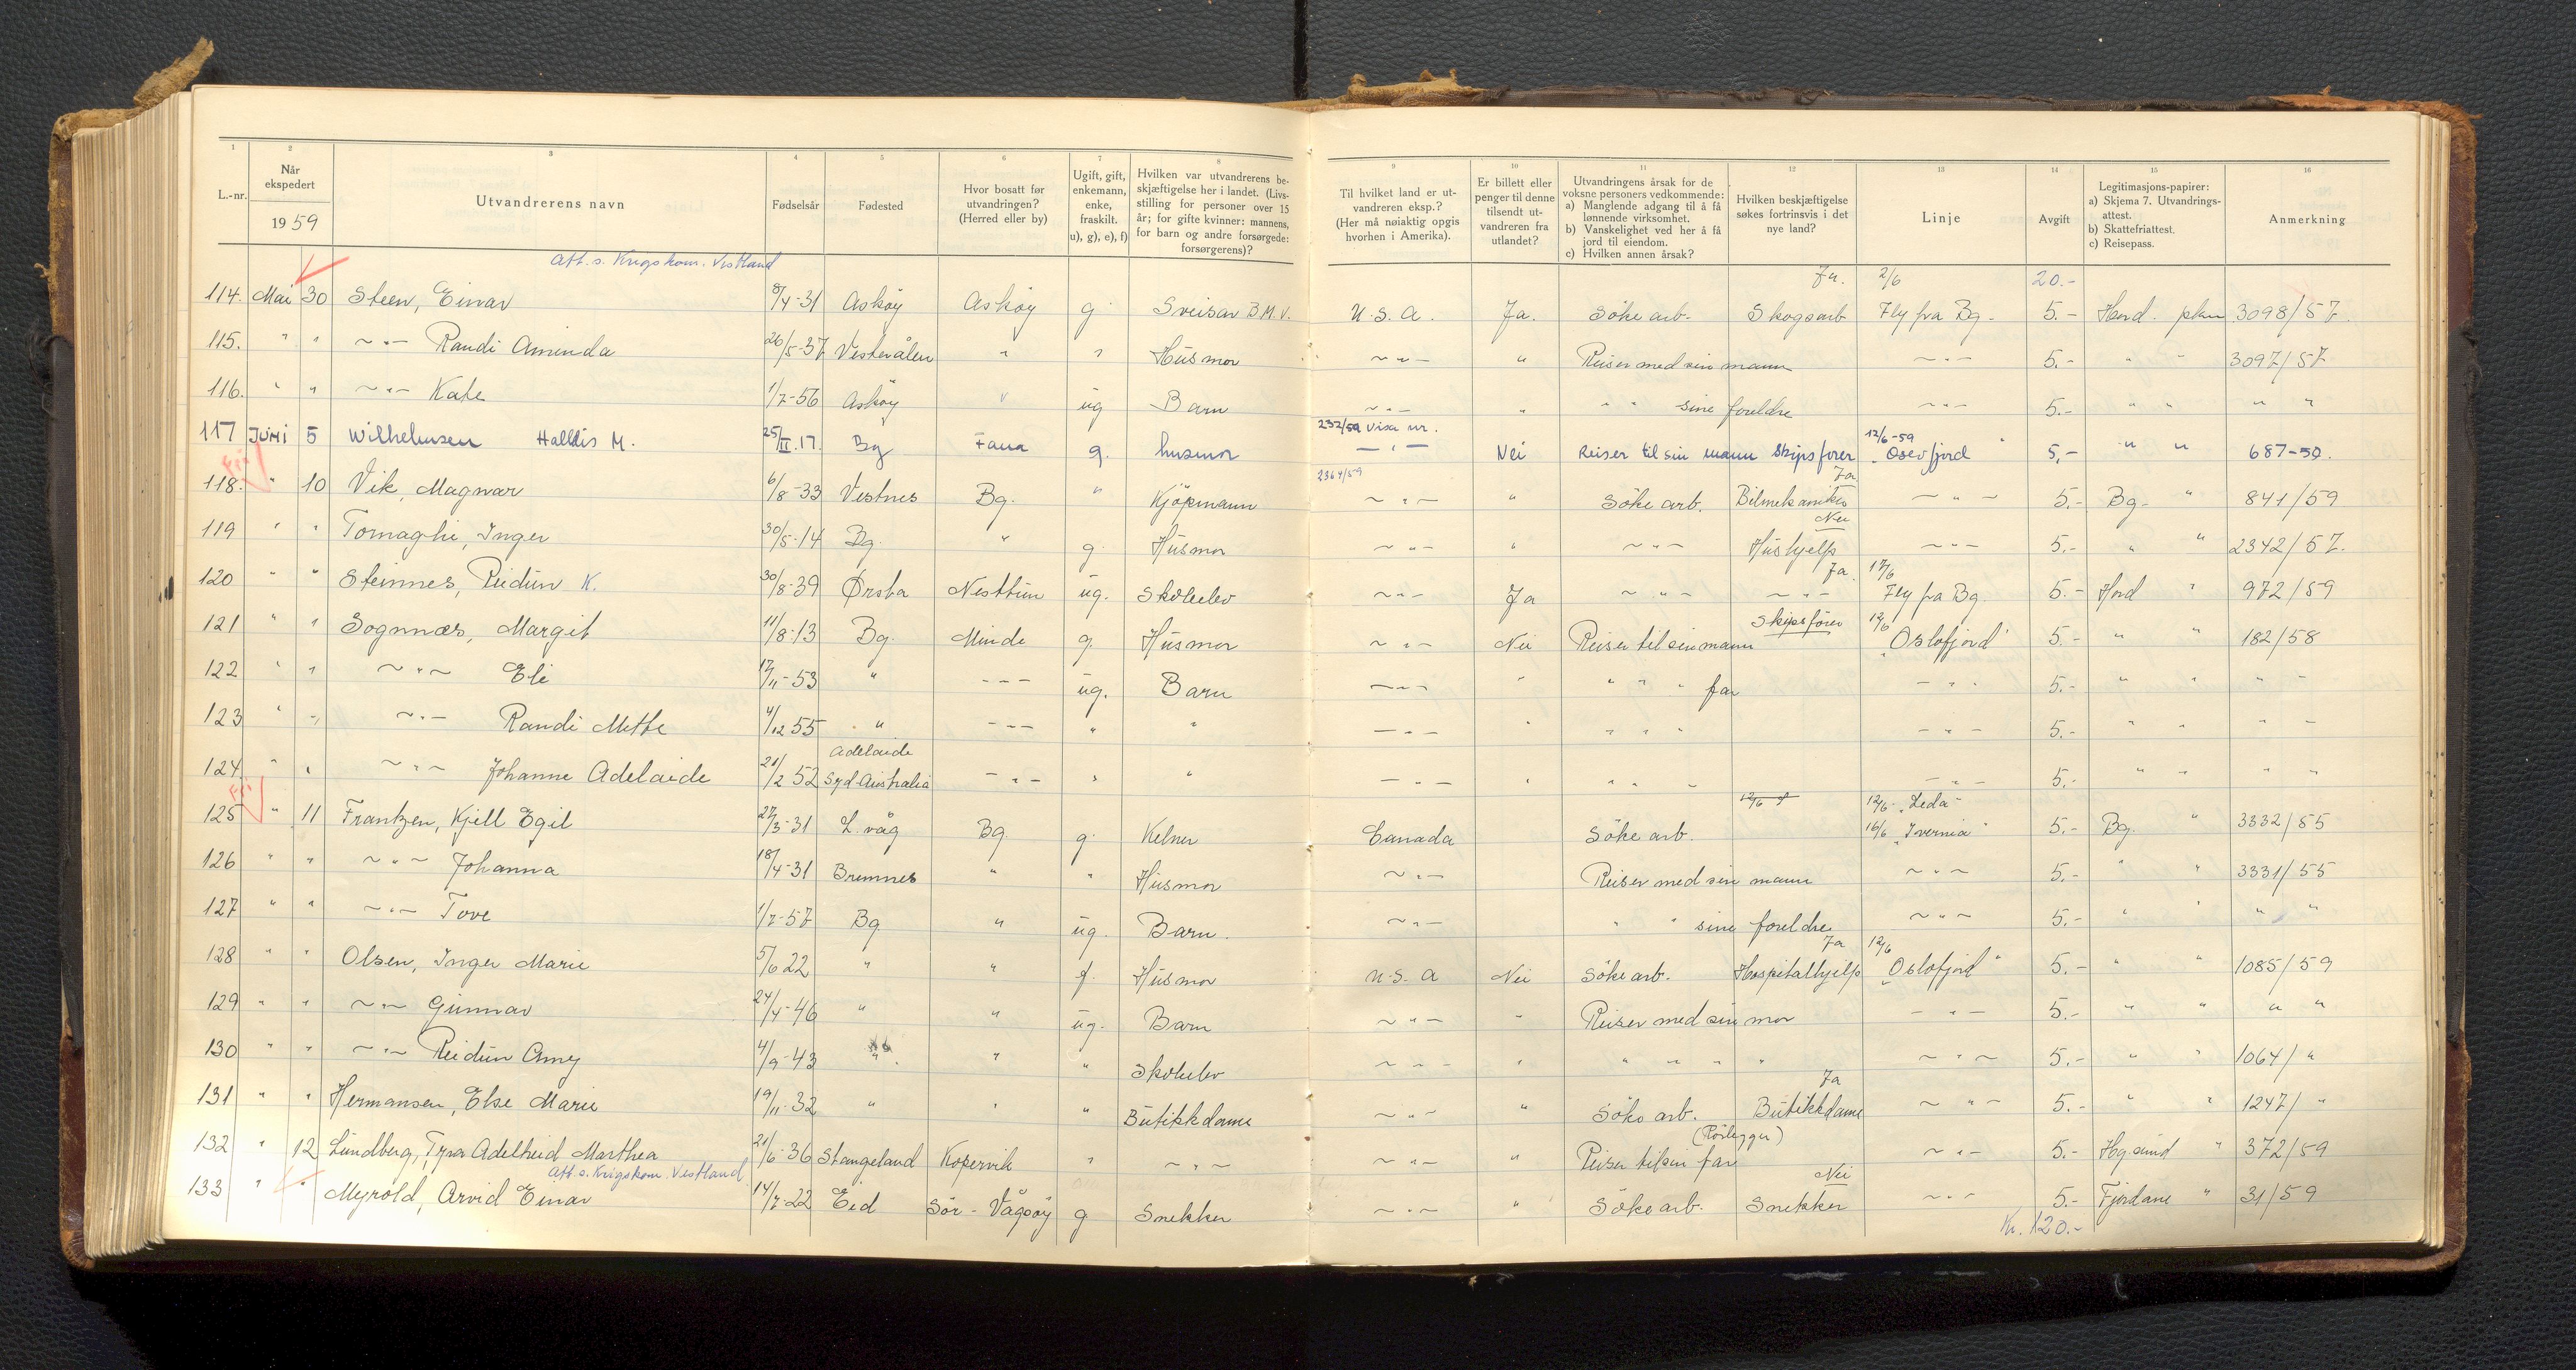 1 2 3 4 5 6 7 8 9 10 11 12 13 14 15 16
L.-nr. | Når ekspedert 1959 | Utvandrerens navn | Fødselsår | Fødested | Hvor bosatt før utvandringen? (Herred eller by) | Ugift, gift, enkemann, enke, fraskilt. u), g), e), f) | Hvilken var utvandrerens beskjæftigelse her i landet. (Livsstilling for personer over 15 år; for gifte kvinner: mannens, for barn og andre forsørgede: forsørgerens)? | Til hvilket land er utvandreren eksp.? (Her må nøiaktig opgis hvorhen i Amerika). | Er billett eller penger til denne tilsendt utvandreren fra utlandet? | Utvandringens årsak for de voksne personers vedkommende: a) Manglende adgang til å få lønnende virksomhet. b) Vanskelighet ved her å få jord til eiendom. c) Hvilken annen årsak? | Hvilken beskjæftigelse søkes fortrinsvis i det nye land? | Linje | Avgift | Legitimasjons-papirer: a) Skjema 7. Utvandringsattest. b) Skattefriattest. c) Reisepass. | Anmerkning
Att. s. Krigskom. Vestland
Ja. 2/6 20.-
114. Mai 30 Steen, Einar 8/4-31 Askøy Askøy g Sveisar B.M.V. U.S.A. Ja. Söke arb. Skogsarb Fly fra Bg. 5.- Hord. pkm 3098/57.
115. " " ~"~ Randi Aminda 26/5-37 Vesterålen " " Husmor ~"~ " Reiser med sin mann ~"~ 5.- " " 3097/57
116. " " ~"~ Kate 1/7-56 Askøy " ug Barn ~"~ " " " sine foreldre ~"~ 5.- " " " "
232/59 visa nr. 12/6-59
117 JUNI 5 Wilhelmsen Halldis M. 25/II.17. Bg Fana g. husmor ~"~ Nei Reiser til sin mann Skipsfører "Oslofjord" 5,- " " 687-50.
Fri 2364/59 Ja
118. " 10 Vik, Magnar 6/8-33 Vestnes Bg. " Kjöpmann ~"~ " Söke arb. Bilmekaniker ~"~ 5.- Bg. " 841/59
Nei
119 " " Tornaghi, Inger 30/5-14 Bg. " g. Husmor ~"~ " ~"~ Hushjelp ~"~ 5.- " " 2342/57.
Ja. 17/6
120 " " Steinnes, Reidun K. 30/8-39 Ørsta Nesttun ug. Skoleelev ~"~ Ja ~"~ ~"~ Fly fra Bg. 5.- Hord " 972/59
Skipsfører 12/6
121 " " Sognnæs, Margit 11/8-13 Bg. Minde g. Husmor ~"~ Nei Reiser til sin mann "Oslofjord" 5.- " " 182/58
122 " " ~"~ Eli 17/11-53 " ~"~ ug. Barn ~"~ " " " " far ~"~ 5.- " " " "
123 " " ~"~ Randi Mette 4/12 55 " ~"~ " " ~"~ " " " " ~"~ 5.- " " " "
Adelaide
124 " " ~"~ Johanne Adelaide 21/2 52 Syd Australia ~"~ " " ~"~ " " " " ~"~ 5.- " " " "
Fri 12/6 12/6 "Leda"
125 " 11 Frantzen, Kjell Egil 27/3-31 L.våg Bg. g. Kelner Canada Söke arb. 16/6 "Ivernia" 5.- Bg. " 3332/55
126 " " ~"~ Johanna 18/4-31 Bremnes " " Husmor ~"~ Reiser med sin mann ~"~ 5.- " " 3331/55
127 " " ~"~ Tove 1/7-57 Bg " ug. Barn. ~"~ " " sine foreldre ~"~ 5.- " " " "
Ja 12/6
128 " " Olsen, Inger Marie 5/6 22 " " f. Husmor U.S.A Nei Söke arb. Hospitalhjelp "Oslofjord" 5.- " " 1085/59
129 " " ~"~ Gunnar 24/4-46 " " ug. Barn ~"~ " Reiser med sin mor ~"~ 5.- " " " "
130 " " ~"~ Reidun Amy 4/9-43 " " " Skoleelev ~"~ " " " " " ~"~ 5.- " " 1064/ "
Ja
131 " " Hermansen, Else Marie 19/11-32 " " " Butikkdame ~"~ " Söke arb. Butikkdame ~"~ 5.- " " 1247/ "
(Rørlegger)
132 " 12 Lundberg, Tyra Adelheid Marthea 21/6-36 Stangeland Kopervik " ~"~ ~"~ " Reiser til sin far ~"~ 5.- Hg.sund " 372/59
Att s. Krigskom. Vestland Nei
133 " " Myrold, Arvid Einar 14/7-22 Eid Sör-Vågsøy g Snekker ~"~ " Söke arb. Snekker ~"~ 5.- Fjordane " 31/59
Kr. 120.-